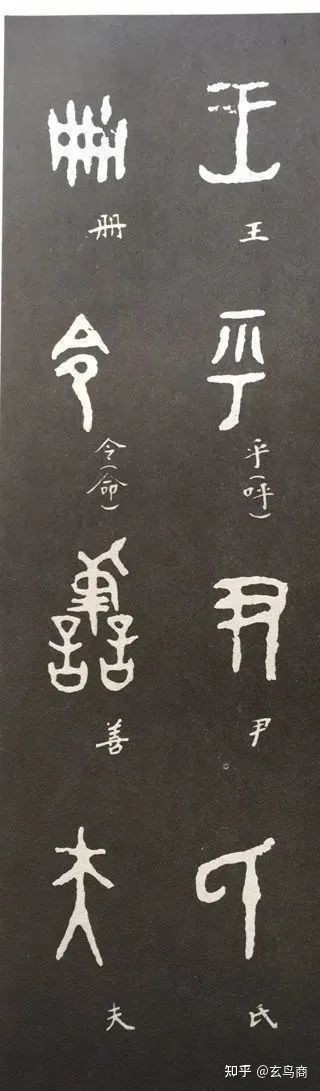 王
乎(呼)
尹
氏
册
令(命)
善
夫
知乎 @玄鸟商